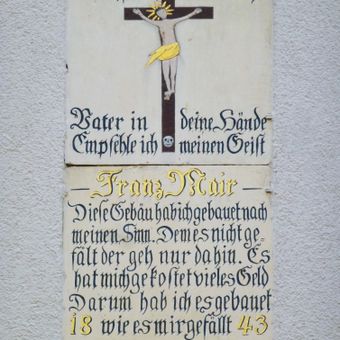 Vater in deine Hände
Empfehle ich meinen Geist
Franz Mair
Diese Gebäu hab ich gebauet nach
meinen Sinn. Dem es nicht ge-
fält der geh nur dahin. Es
hat mich gekostet vieles Geld
Darum hab ich es gebauet
18 wie es mir gefällt 43